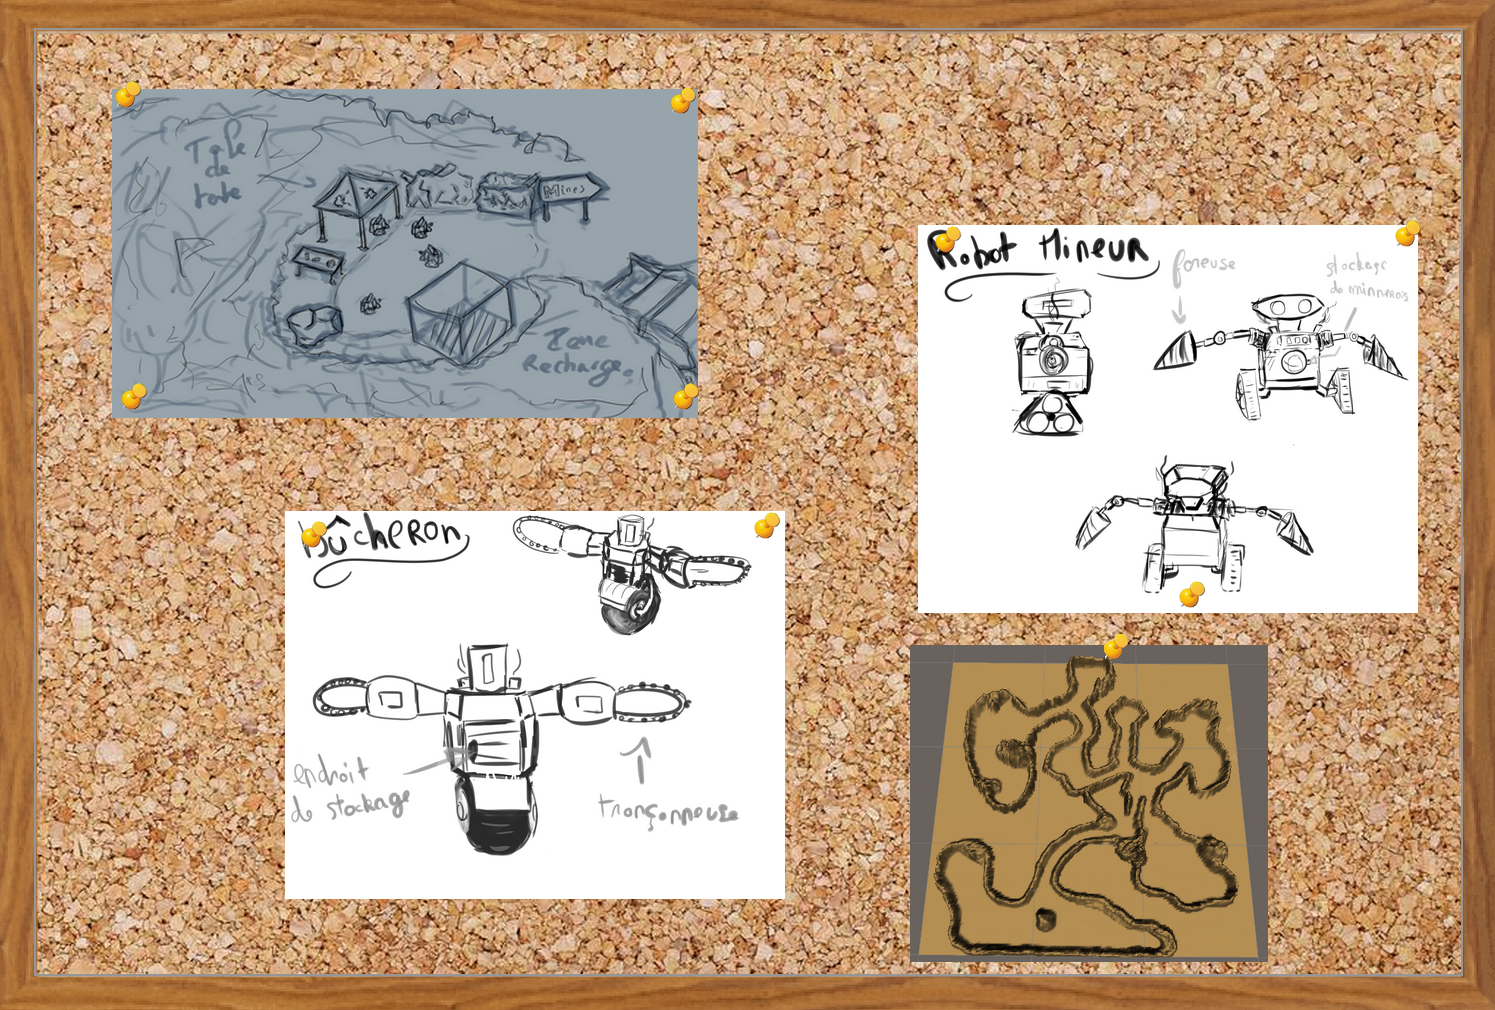 de
Mines
Zone
Recharge
Robot Mineur
foreuse
stockage
de minnerais
bûcheron
endroit
de stockage
tronçonneuse